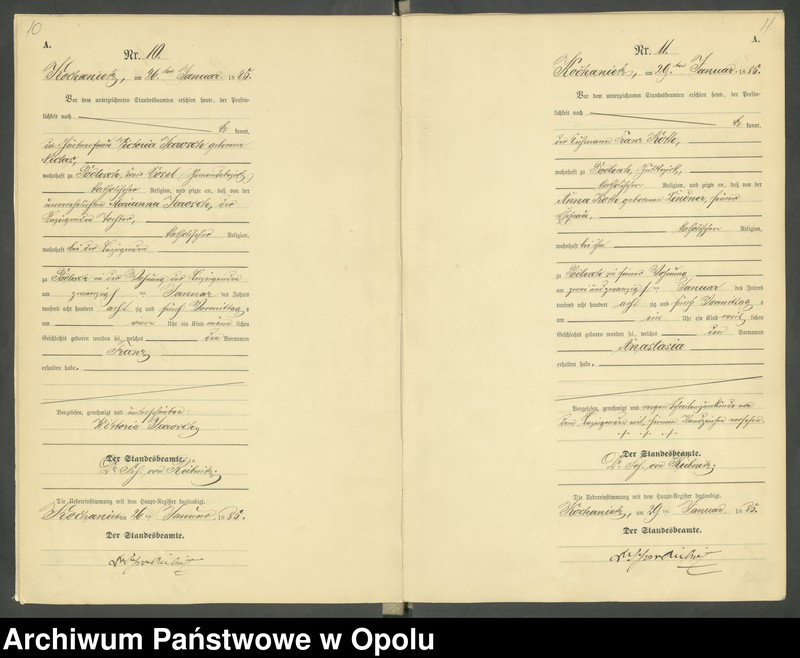 10
A.
Nr. 10.
Kochanietz, am 26ten Januar 1885.
Vor dem unterzeichneten Standesbeamten erschien heute, der Persön-
lichkeit nach
be kannt,
die Gärtnerfrau Victoria geborene
wohnhaft zu Kreis Cosel
katholischer Religion, und zeigte an, daß von der
unverehelichten Marianna der
Anzeigenden Tochter,
katholischer Religion,
wohnhaft bei der Anzeigenden
zu in der Wohnung der Anzeigenden
am zwanzigsten Januar des Jahres
tausend acht hundert acht zig und fünf Vormittag s
um vier Uhr ein Kind männ lichen
Geschlechts geboren worden sei, welches den Vornamen
Franz
erhalten habe.
Vorgelesen, genehmigt und unterschrieben
Der Standesbeamte.
Die Uebereinstimmung mit dem Haupt-Register beglaubigt.
Kochanietz am 26ten Januar 1885.
Der Standesbeamte.
11
A.
Nr. 11.
Kochanietz, am 29ten Januar 1885.
Vor dem unterzeichneten Standesbeamten erschien heute, der Persön-
lichkeit nach
be kannt,
der Franz Kotte,
wohnhaft zu
katholischer Religion, und zeigte an, daß von der
Anna Kotte geborenen Lindner, seiner
Ehefrau,
katholischer Religion,
wohnhaft bei ihm
zu in seiner Wohnung
am zwei und zwanzigsten Januar des Jahres
tausend acht hundert acht zig und fünf Vormittag s
um ein Uhr ein Kind weib lichen
Geschlechts geboren worden sei, welches den Vornamen
Anastasia
erhalten habe.
Vorgelesen, genehmigt und wegen Schreibensunkunde von
dem Anzeigenden mit seinem Handzeichen versehen.
+ + +
Der Standesbeamte.
Die Uebereinstimmung mit dem Haupt-Register beglaubigt.
Kochanietz, am 29ten Januar 1885.
Der Standesbeamte.
Archiwum Państwowe w Opolu